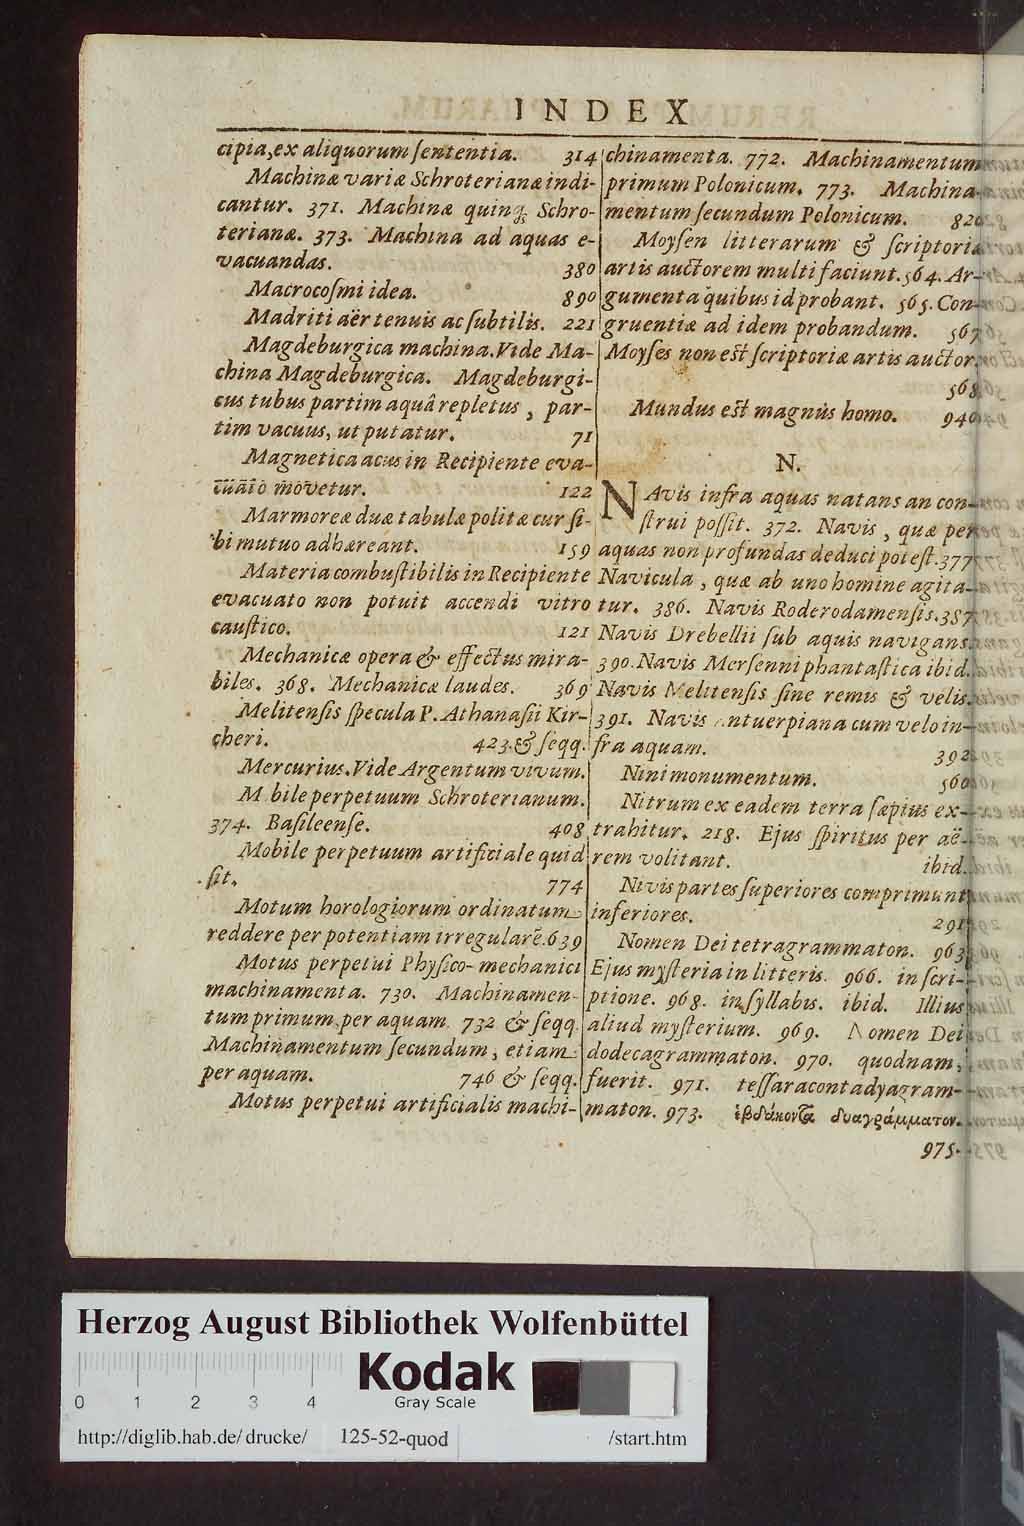 INDEX
cipia, ex aliquorum sententia. 314
Machinæ variæ Schroterianæ indi-
cantur. 371. Machinæ quinq; Schro-
terianæ. 373. Machina ad aquas e-
vacuandas. 380
Macrocosmi idea. 890
Madriti aër tenuis ac subtilis. 221
Magdeburgica machina. Vide Ma-
china Magdeburgica. Magdeburgi-
cus tubus partim aquâ repletus, par-
tim vacuus, ut putatur. 71
Magnetica acus in Recipiente eva-
cuato movetur. 122
Marmoreæ duæ tabulæ politæ cur si-
bi mutuo adhæreant. 159
Materia combustibilis in Recipiente
evacuato non potuit accendi vitro
caustico. 121
Mechanicæ opera & effectus mira-
biles. 368. Mechanicæ laudes. 369
Melitensis specula P. Athanasii Kir-
cheri. 423. & seqq.
Mercurius. Vide Argentum vivum.
M bile perpetuum Schroterianum.
374. Basileense. 408
Mobile perpetuum artificiale quid
sit. 774
Motum horologiorum ordinatum
reddere per potentiam irregularē. 639
Motus perpetui Physico-mechanici
machinamenta. 730. Machinamen-
tum primum per aquam 732 & seqq.
Machinamentum secundum, etiam
per aquam. 746 & seqq.
Motus perpetui artificialis machi-
chinamenta. 772. Machinamentum
primum Polonicum. 773. Machina-
mentum secundum Polonicum. 820
Moysen litterarum & scriptoriæ
artis auctorem multi faciunt. 564. Ar-
gumenta quibus id probant. 565. Con-
gruentiæ ad idem probandum. 567
Moyses non est scriptoriæ artis auctor.
568
Mundus est magnus homo. 940
N.
NAvis infra aquas natans an con-
strui possit. 372. Navis, quæ per
aquas non profundas deduci potest. 377
Navicula, quæ ab uno homine agita-
tur. 386. Navis Roderodamensis. 387
Navis Drebellii sub aquis navigans.
390. Navis Mersenni phantastica ibid.
Navis Melitensis sine remis & velis.
391. Navis ntuerpiana cum velo in-
fra aquam. 392
Nini monumentum. 560
Nitrum ex eadem terra sæpius ex-
trahitur. 218. Ejus spiritus per aë-
rem volitant. ibid.
Nivis partes superiores comprimunt
inferiores. 291
Nomen Dei tetragrammaton. 963
Ejus mysteria in litteris. 966. in scri-
ptione. 968. in syllabis. ibid. Illius
aliud mysterium. 969. Nomen Dei
dodecagrammaton. 970. quodnam
fuerit. 971. tessaracontadyagram-
maton. 973. ἑβδάκοντα δυαγράμματον.
975.
Herzog August Bibliothek Wolfenbüttel
Kodak
0 1 2 3 4
Gray Scale
http://diglib.hab.de/drucke/ 125-52-quod /start.htm